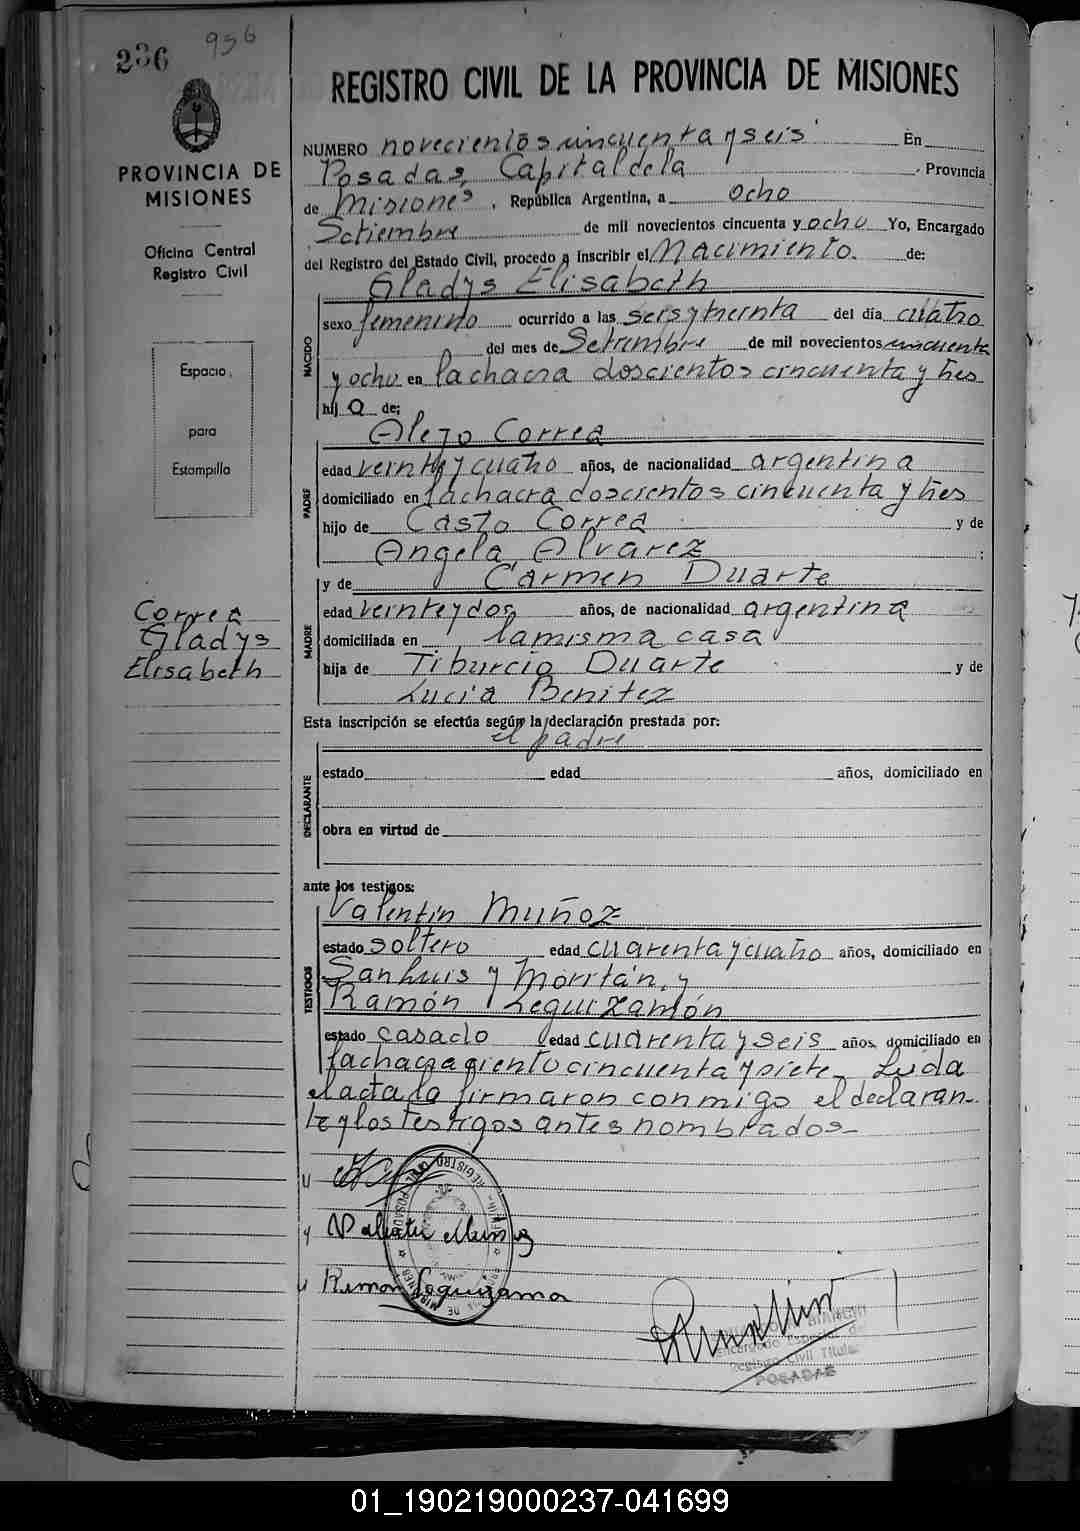 236 956
PROVINCIA DE
MISIONES
Oficina Central
Registro Civil
Espacio
para
Estampilla
Correa
Gladys
Elisabeth
REGISTRO CIVIL DE LA PROVINCIA DE MISIONES
NUMERO novecientos cincuenta y seis En
Posadas, Capital de la Provincia
de Misiones, República Argentina, a ocho
Setiembre de mil novecientos cincuenta y ocho Yo, Encargado
del Registro del Estado Civil, procedo a inscribir el Nacimiento. de:
NACIDO
Gladys Elisabeth
sexo femenino ocurrido a las seis y treinta del día cuatro
del mes de Setiembre de mil novecientos cincuenta
y ocho en la chacra doscientos cincuenta y tres
hij a de;
PADRE
Alejo Correa
edad veinte y cuatro años, de nacionalidad argentina
domiciliado en la chacra doscientos cincuenta y tres
hijo de Casto Correa y de
Angela Alvarez ;
MADRE
y de Carmen Duarte
edad veinte y dos años, de nacionalidad argentina
domiciliada en la misma casa
hija de Tiburcio Duarte y de
Lucia Benitez
Esta inscripción se efectúa según la declaración prestada por:
el padre
DECLARANTE
estado edad años, domiciliado en
obra en virtud de
ante los testigos:
TESTIGOS
Valentin Muñoz
estado soltero edad cuarenta y cuatro años, domiciliado en
San Luis y Moritán, y
Ramón Leguizamón
estado casado edad cuarenta y seis años, domiciliado en
la chacra ciento cincuenta y siete_ Leida
el acta la firmaron conmigo el declaran-
te y los testigos antes nombrados_
REGISTRO CIVIL
POSADAS
MISIONES
Valentin Muñoz
Ramon Leguizamon
BIANCHI
Encargado
Registro Civil Titular
POSADAS
01_190219000237-041699